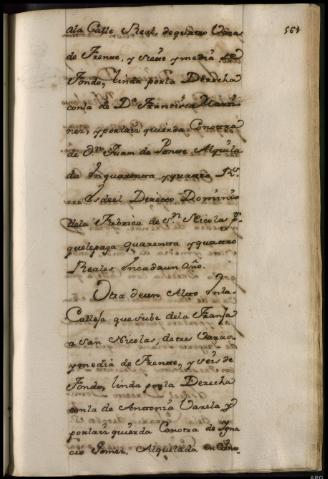 561
ala Calle Real de quatro Varas
de Frente, y Nueve y media de
Fondo, linda porla Derecha
conla de Dª Francisca Marti
nez, y porla izquierda Conotra
de Dn Juan de Ponte Alquila
da In quarenta y quatro Rs
es del Directo Dominio
dela Fabrica de Sn Nicolas
que lepaga quarenta y quatro
Reales Encadaun Año.
Otra deun Alto Enla
Calleja que sube dela Franja
a San Nicolas, de tres Varas
y media de Frente, y seis de
Fondo, linda porla Derecha
conla de Antonia Varela y
porla izquierda Conotra de Igna
cio Gomez, Alquilada en